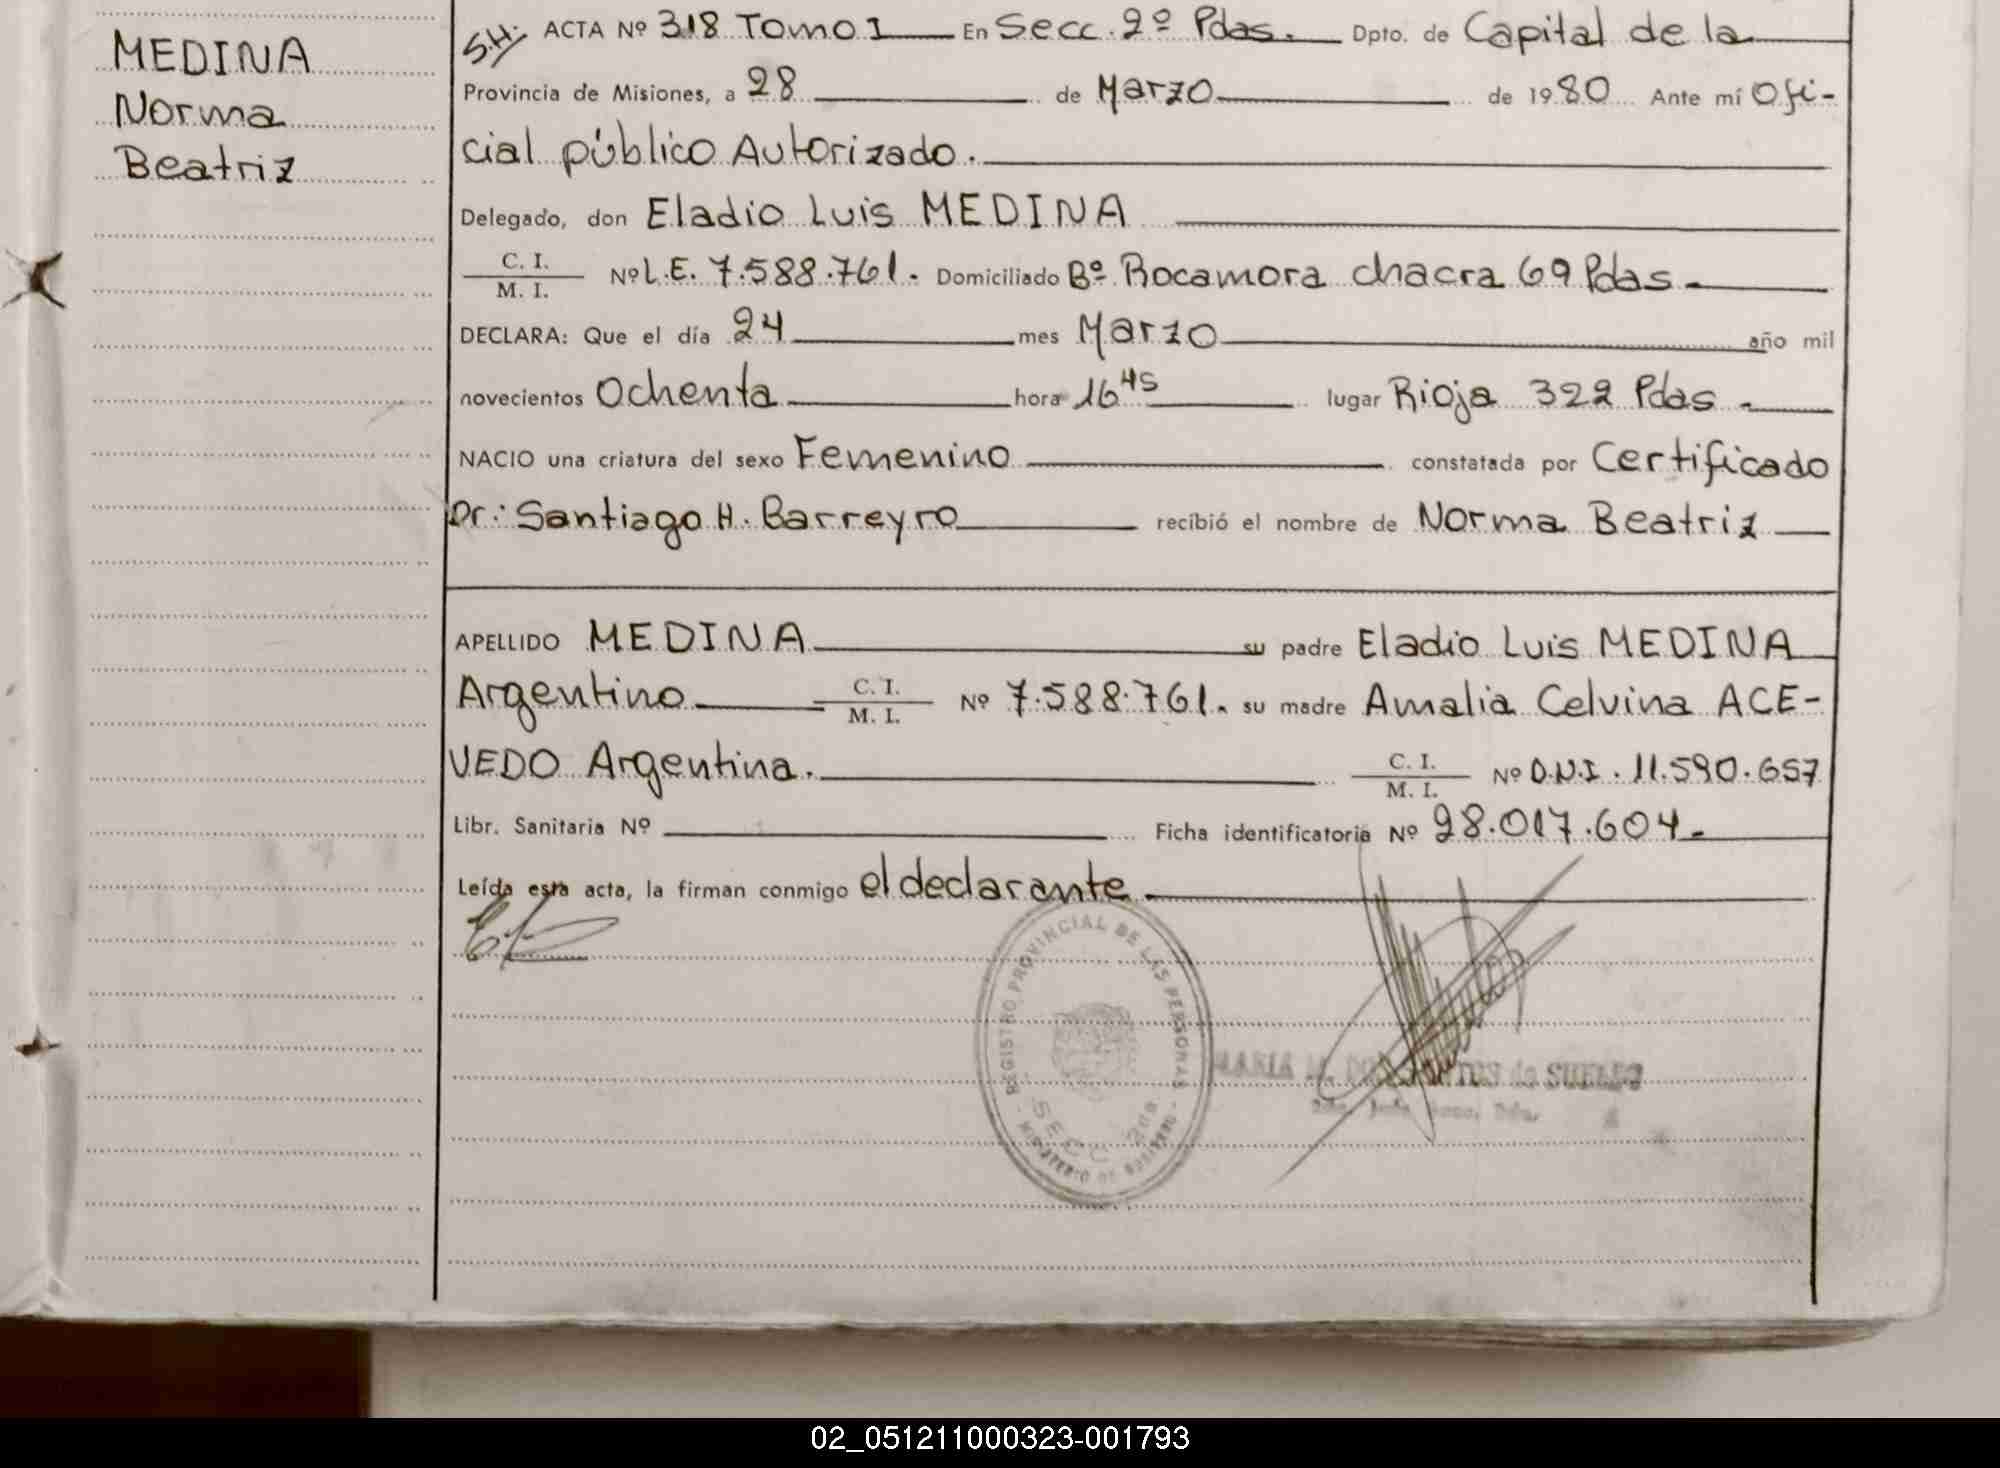 MEDINA
Norma
Beatriz
S.H: ACTA Nº 318 Tomo I En Secc. 2º Pdas. Dpto. de Capital de la
Provincia de Misiones, a 28 de Marzo de 1980 Ante mí Ofi-
cial público Autorizado.
Delegado, don Eladio Luis MEDINA
C. I.
M. I. Nº L.E. 7.588.761. Domiciliado Bº Rocamora chacra 69 Pdas.
DECLARA: Que el día 24 mes Marzo año mil
novecientos Ochenta hora 16 45 lugar Rioja 322 Pdas.
NACIO una criatura del sexo Femenino constatada por Certificado
Dr: Santiago H. Barreyro recibió el nombre de Norma Beatriz
APELLIDO MEDINA su padre Eladio Luis MEDINA
Argentino C. I. M. I. Nº 7.588.761. su madre Amalia Celvina ACE-
VEDO Argentina. C. I. M. I. Nº D.N.I. 11.590.657
Libr. Sanitaria Nº Ficha identificatoria Nº 28.017.604.
Leída esta acta, la firman conmigo el declarante.
REGISTRO PROVINCIAL DE LAS PERSONAS
SECC 2da
MINISTERIO DE GOBIERNO
MARIA M. de SUELDO
02_051211000323-001793